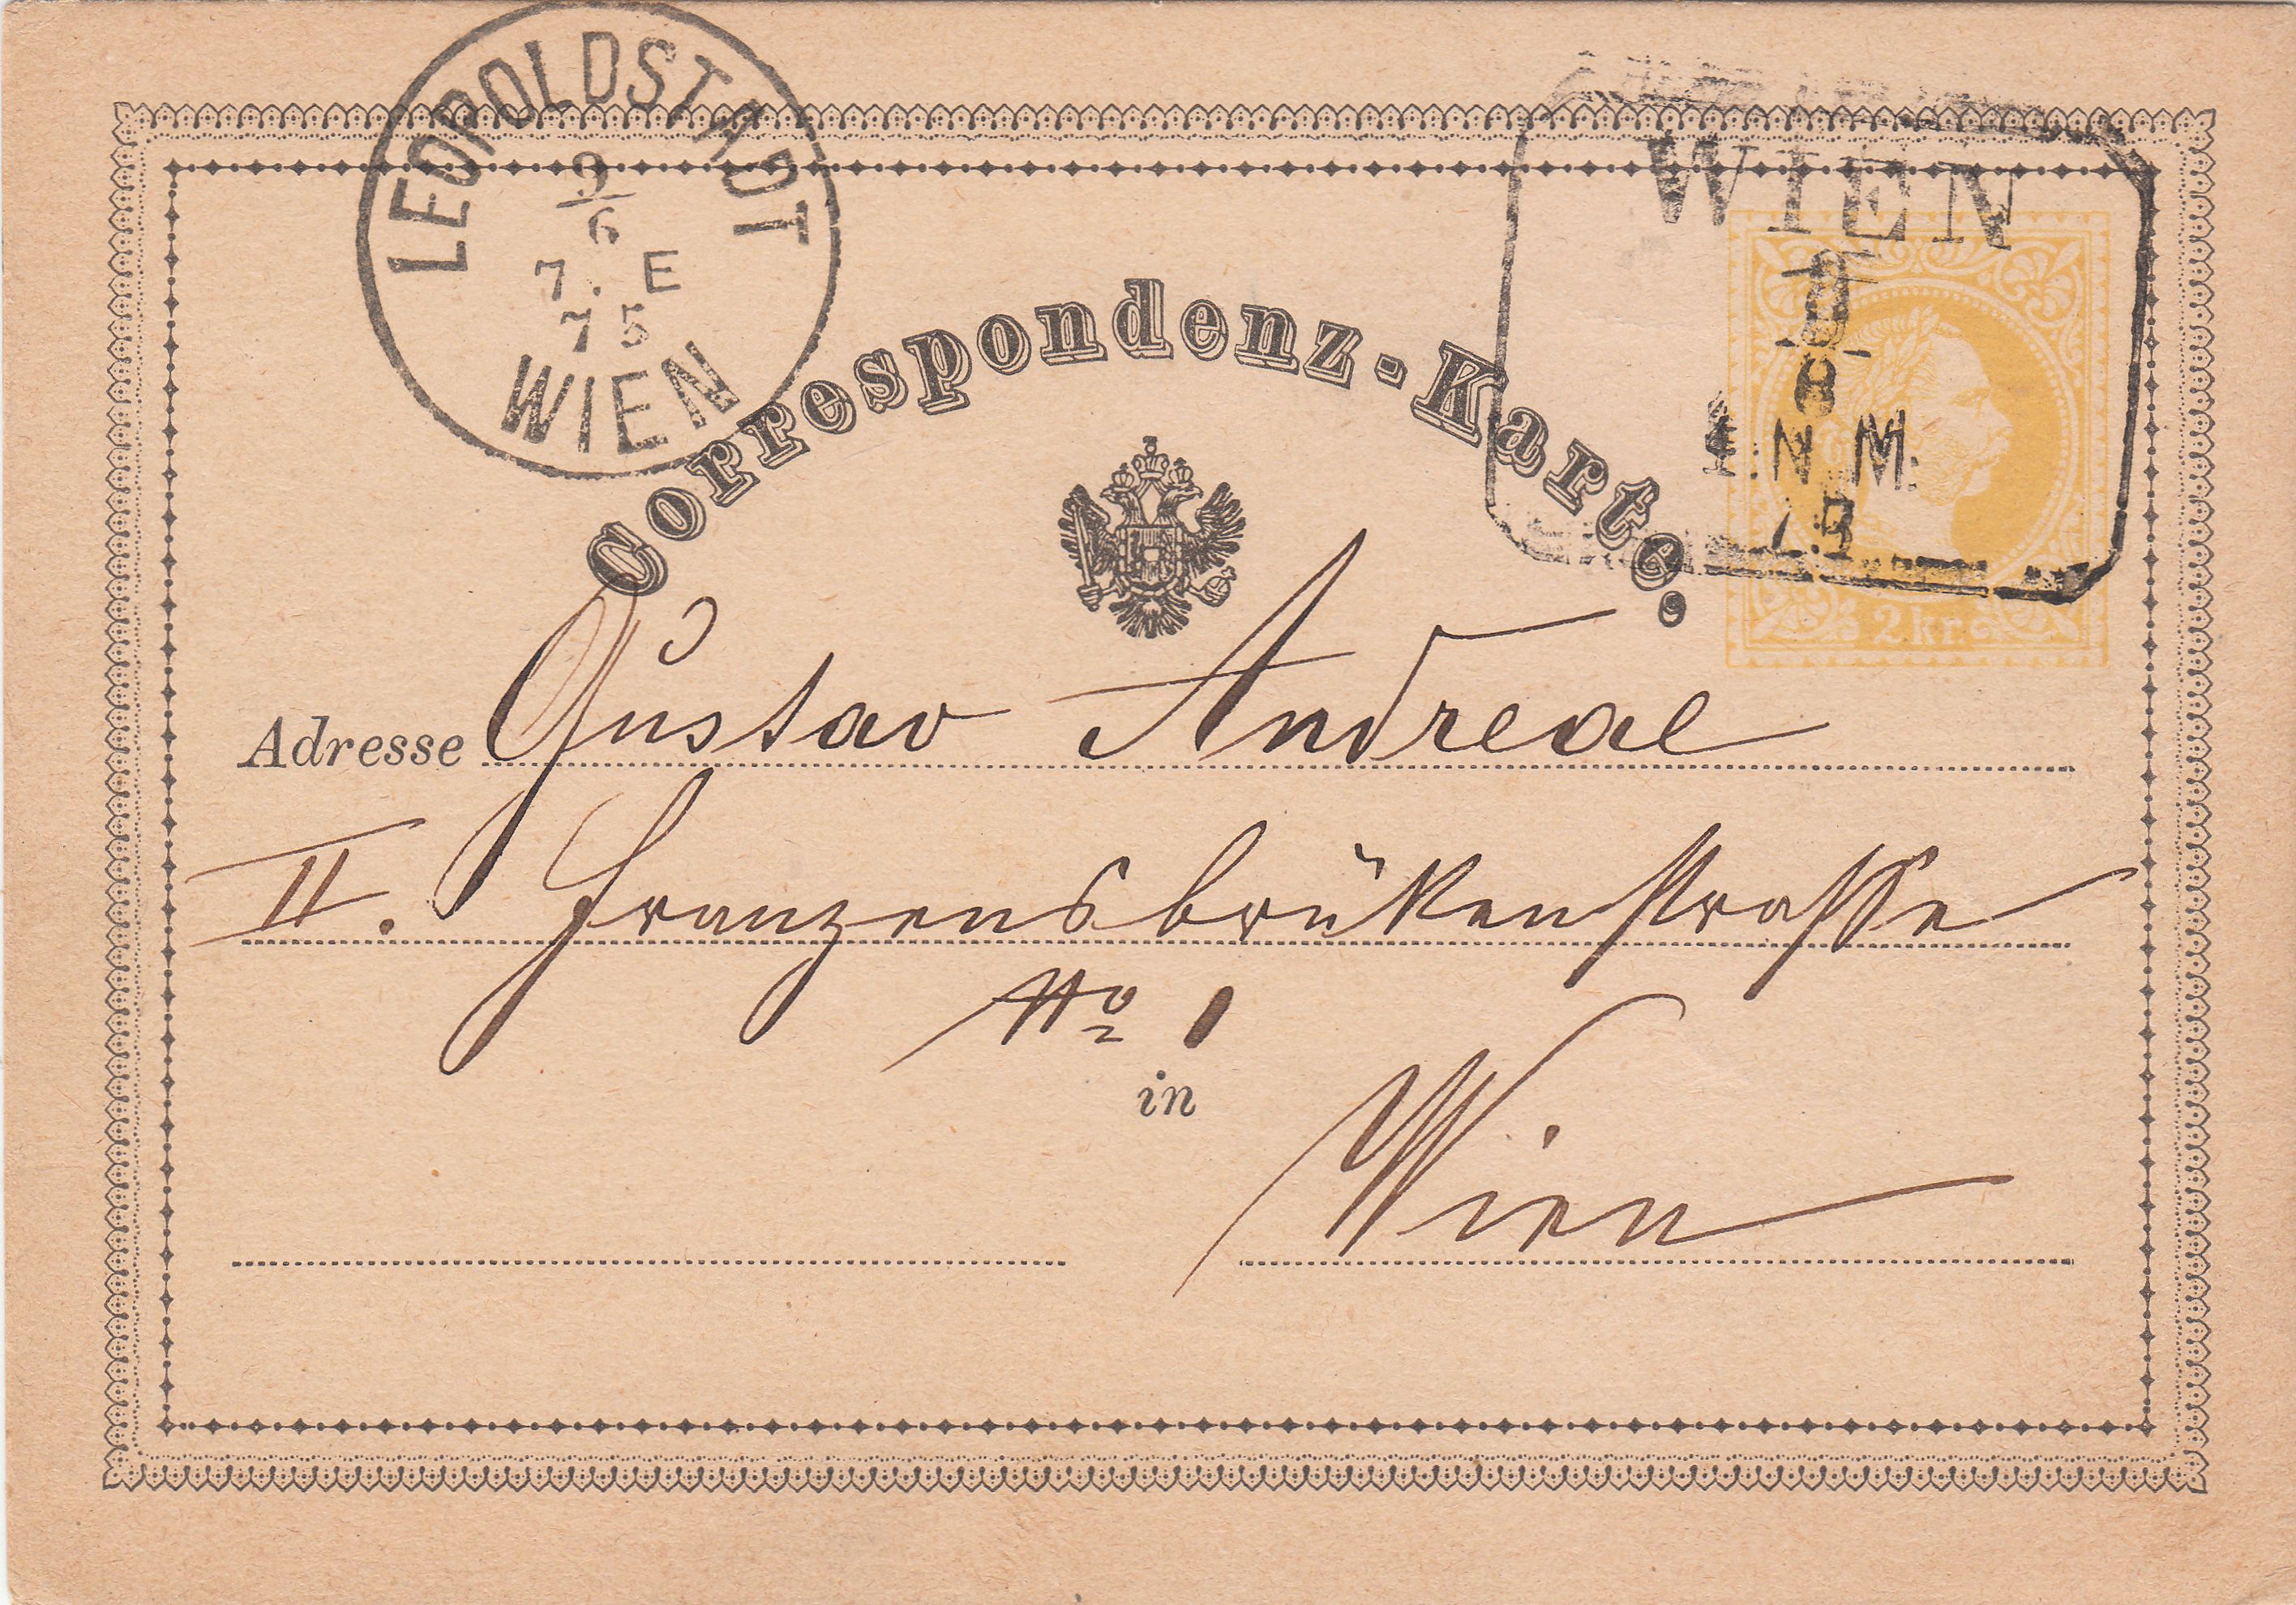 LEOPOLDSTADT
9/6
7. E
75
WIEN
WIEN
8
N. M.
2 kr.
Correspondenz-Karte.
Adresse Gustav Andreae
II. Franzensbrükenstrasse
No 1
in
Wien